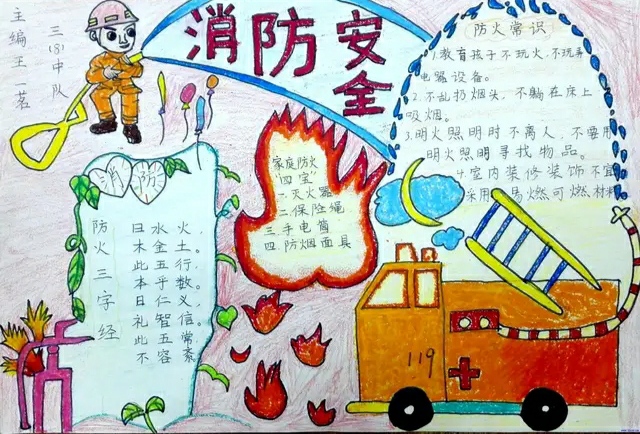 消防安全
主编王茗
三(8)中队
消防
防火三字经
曰水火,
木金土。
此五行,
本乎数。
曰仁义,
礼智信。
此五常
不容紊
家庭防火
"四宝"
一灭火器
二保险绳
三手电筒
四防烟面具
防火常识
1.教育孩子不玩火,不玩弄
电器设备。
2.不乱扔烟头,不躺在床上
吸烟。
3.明火照明时不离人,不要用
明火照明寻找物品。
4.室内装修装饰不宜
采用易燃可燃材料
119